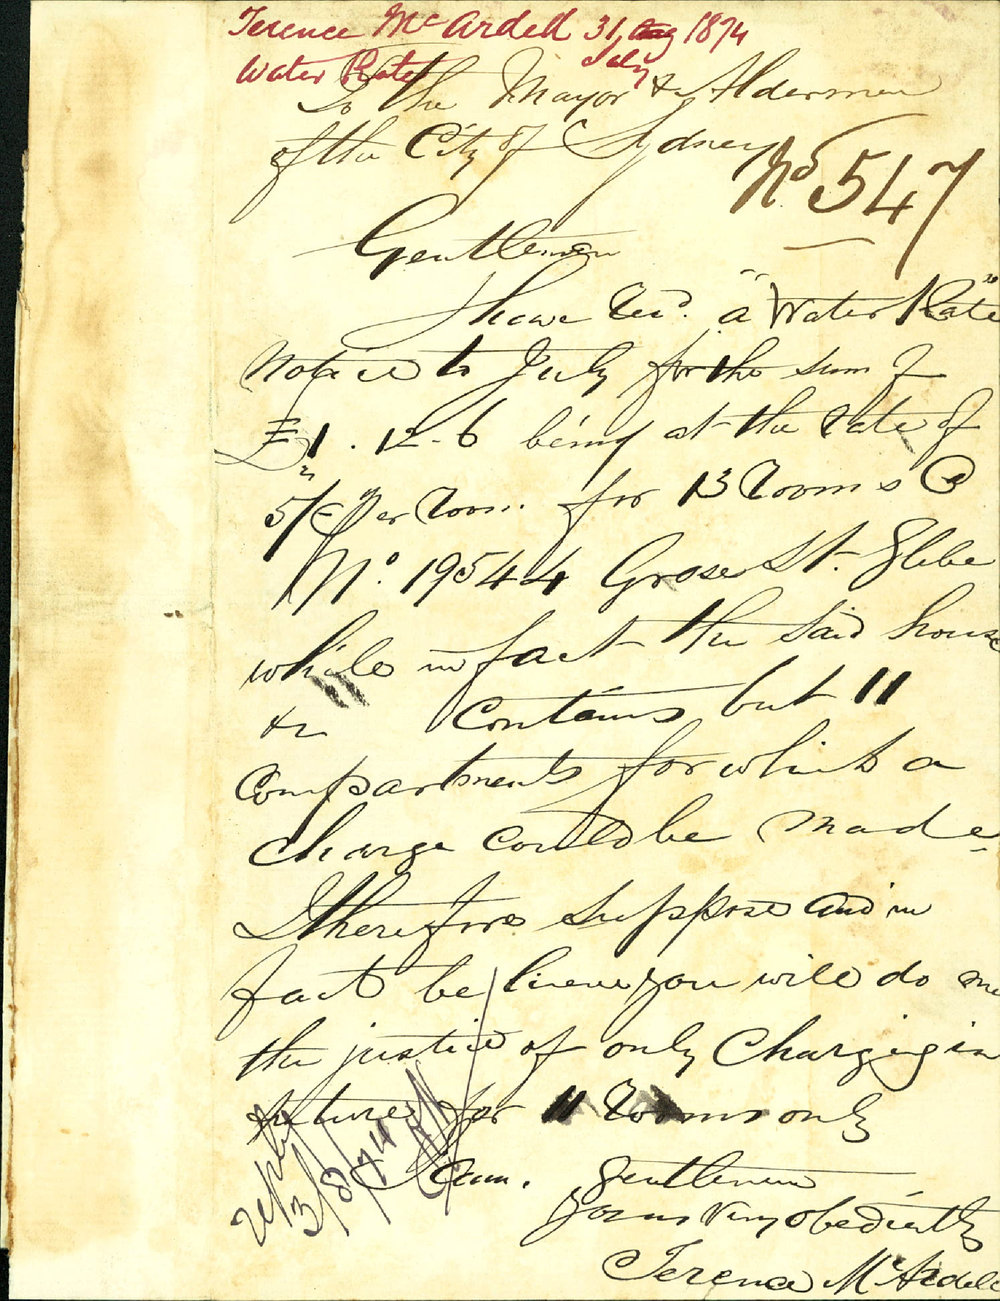 Terence McArdell 31 Aug 1874
July
Water Rate
To the Mayor & Aldermen
of the City of Sydney
No 547
Gentlemen
I have Recd. a "Water Rate"
Notice to July for the sum of
£1.12-6 being at the rate of
5/- Per Room. for 13 Rooms @
No. 19544 Grose St. Glebe
while in fact the said house
Contains but 11
Compartments for which a
charge could be made
I therefore suppose and in
fact believe you will do me
the justice of only Charging in
future for 11 Rooms only
I am. Gentlemen
Yours Very obediently
Terence McArdell
reply
3/8/74